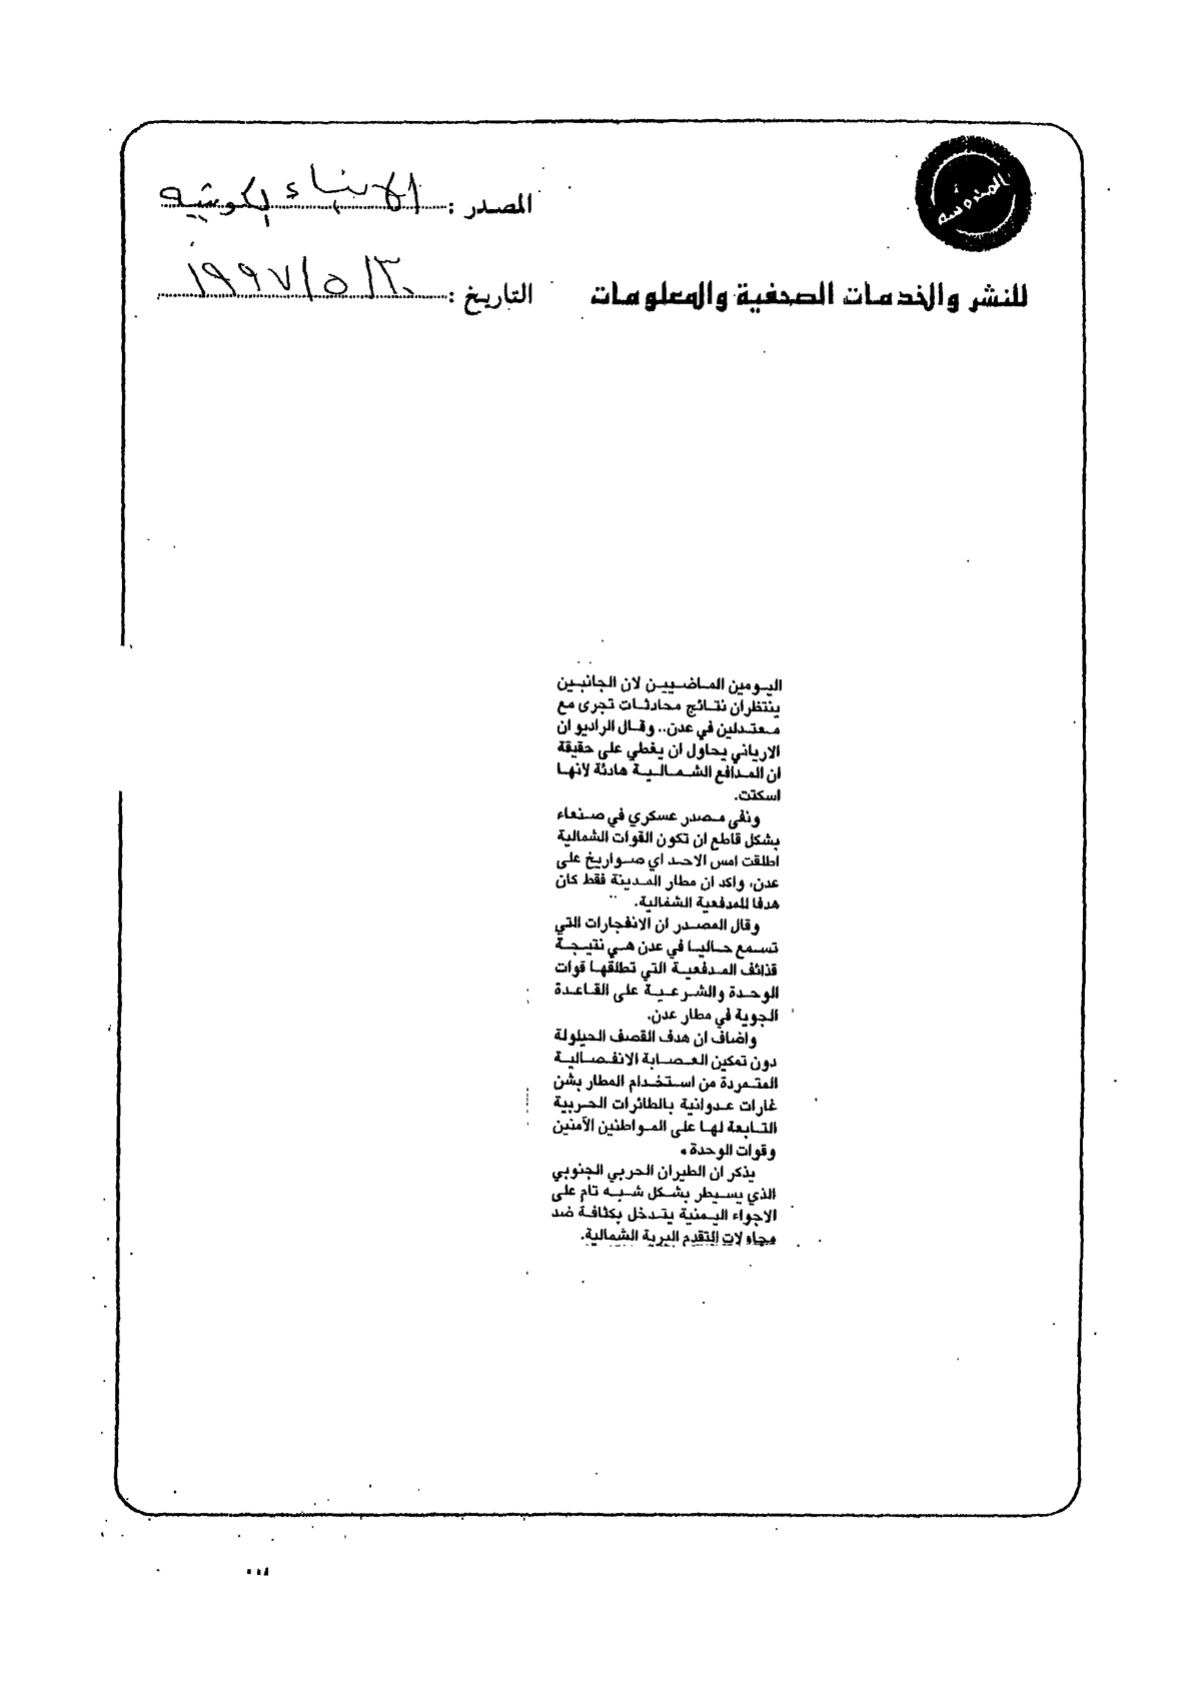 المصدر : الانباء الكويتيه
التاريخ : ٣٠/٥/١٩٩٧
للنشر والخدمات الصحفية والمعلومات
اليومين الماضيين لان الجانبين
ينتظران نتائج محادثات تجرى مع
معتدلين في عدن.. وقال الراديو ان
الارياني يحاول ان يغطي على حقيقة
ان المدافع الشمالية هادئة لانها
اسكتت.
ونفى مصدر عسكري في صنعاء
بشكل قاطع ان تكون القوات الشمالية
اطلقت امس الاحد اي صواريخ على
عدن، واكد ان مطار المدينة فقط كان
هدفا للمدفعية الشمالية.
وقال المصدر ان الانفجارات التي
تسمع حاليا في عدن هي نتيجة
قذائف المدفعية التي تطلقها قوات
الوحدة والشرعية على القاعدة
الجوية في مطار عدن.
واضاف ان هدف القصف الحيلولة
دون تمكين العصابة الانفصالية
المتمردة من استخدام المطار بشن
غارات عدوانية بالطائرات الحربية
التابعة لها على المواطنين الآمنين
وقوات الوحدة.
يذكر ان الطيران الحربي الجنوبي
الذي يسيطر بشكل شبه تام على
الاجواء اليمنية يتدخل بكثافة ضد
محاولات التقدم البرية الشمالية.